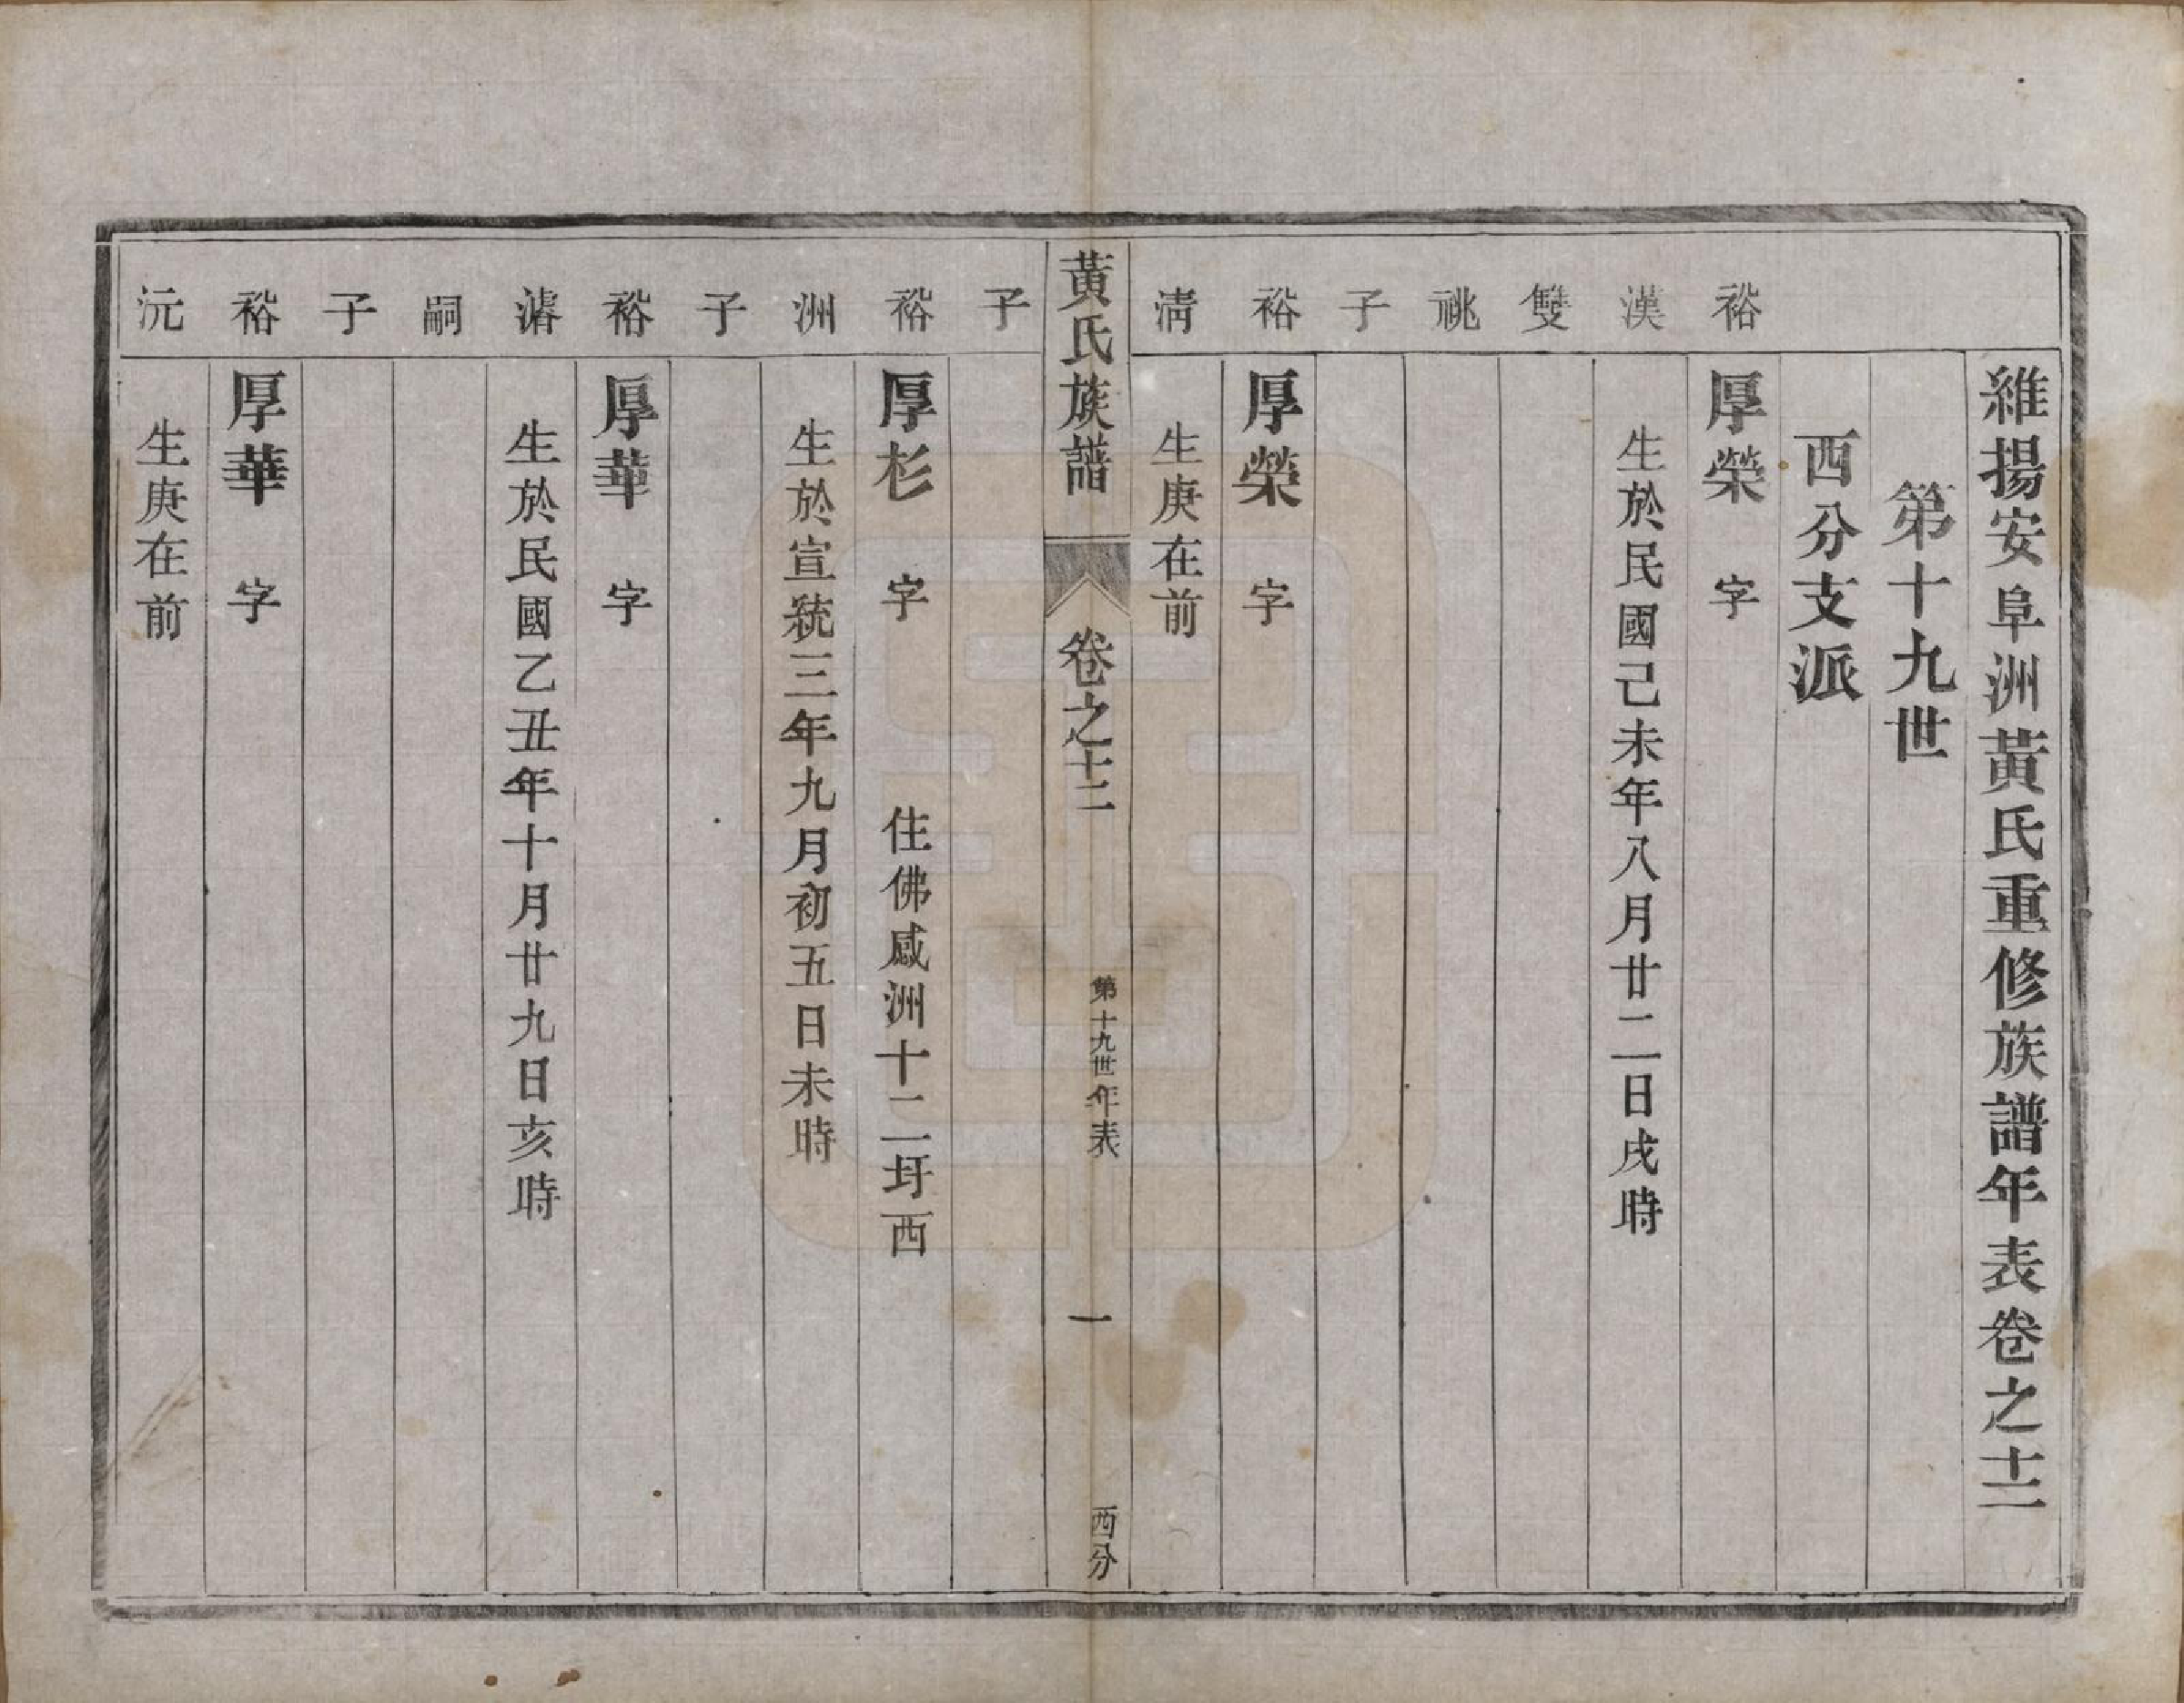 維揚安阜洲黃氏重修族譜年表卷之十二
第十九世
西分支派
裕漢雙祧子
厚榮　字
生於民國己未年八月廿二日戌時
裕淸子
厚榮　字
生庚在前
黃氏族譜　卷之十二　第十九世年表　一　西分
裕洲子
厚杉　字　住佛感洲十二圩西
生於宣統三年九月初五日未時
裕濬嗣子
厚華　字
生於民國乙丑年十月廿九日亥時
裕沅
厚華　字
生庚在前